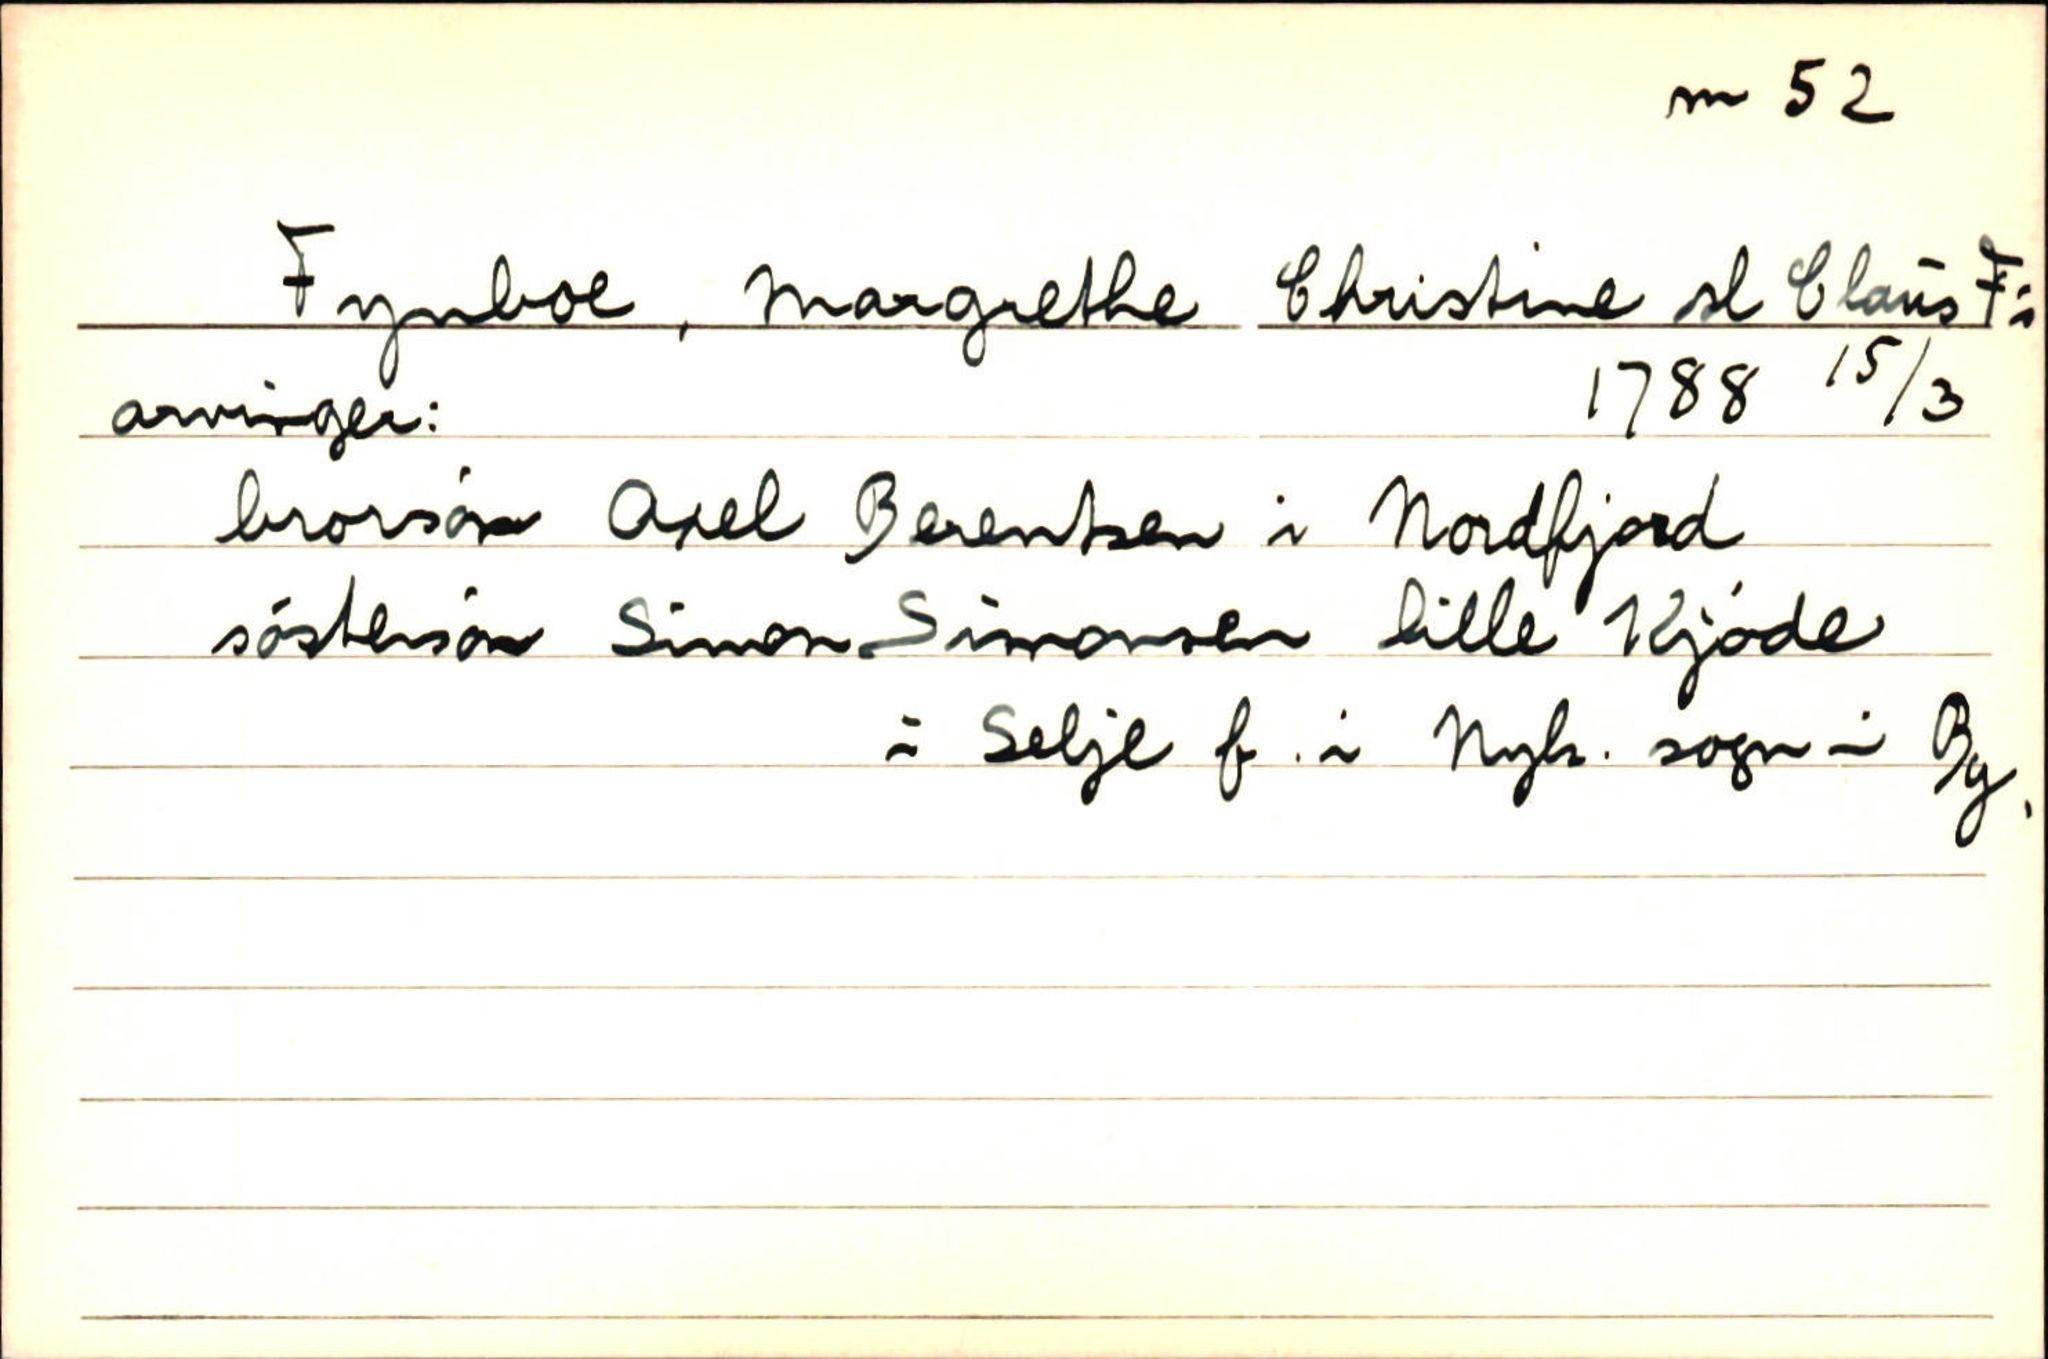 m 52
Fynboe, Margrethe Christine sl Claus F:
1788 15/3
arvinger:
brorsøn Axel Berentsen i Nordfjord
søstersøn Simon Simonsen lille Kjøde
i Selje f. i Nyk. sogn i By.